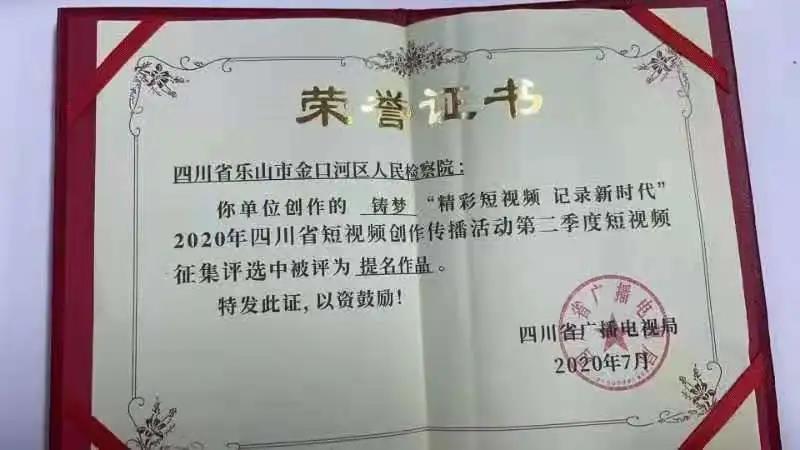 荣誉证书
四川省乐山市金口河区人民检察院：
你单位创作的 铸梦 “精彩短视频 记录新时代”
2020年四川省短视频创作传播活动第二季度短视频
征集评选中被评为 提名作品 。
特发此证，以资鼓励！
四川省广播电视局
2020年7月